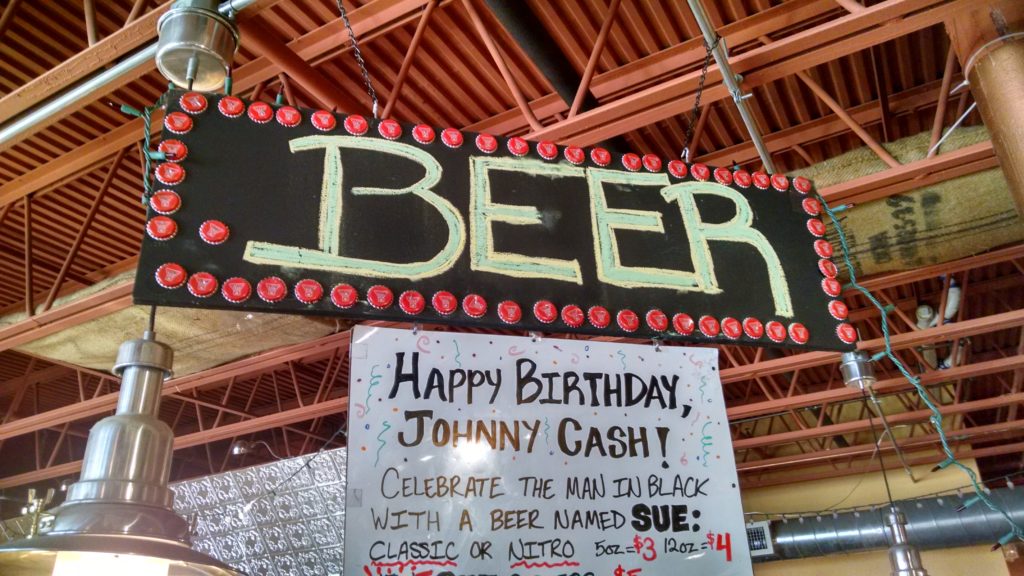 BEER
HAPPY BIRTHDAY,
JOHNNY CASH!
CELEBRATE THE MAN IN BLACK
WITH A BEER NAMED SUE:
CLASSIC OR NITRO 5oz=$3 12oz=$4